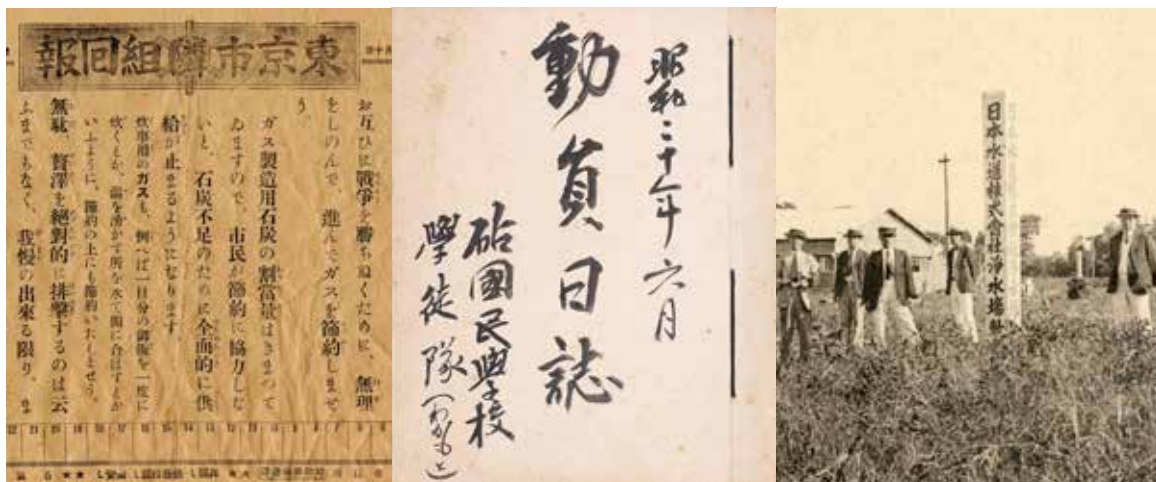 東京市隣組回報
お互ひに戰爭を勝ちぬくために、無理
をしのんで、進んでガスを節約しませ
う。
ガス製造用石炭の割當量はきまつて
ゐますので、市民が節約に協力しな
いと、石炭不足のために全面的に供
給が止まるようになります。
炊事用のガスも、例へば一日分の御飯を一度に
炊くとか、湯を沸かす所を水で間に合はすとか
いふように、節約の上にも節約いたしませう。
無駄、贅澤を絶對的に排撃するのは云
ふまでもなく、我慢の出來る限り、ま
昭和二十年六月
動員日誌
砧國民學校
學徒隊
日本水道株式會社淨水場